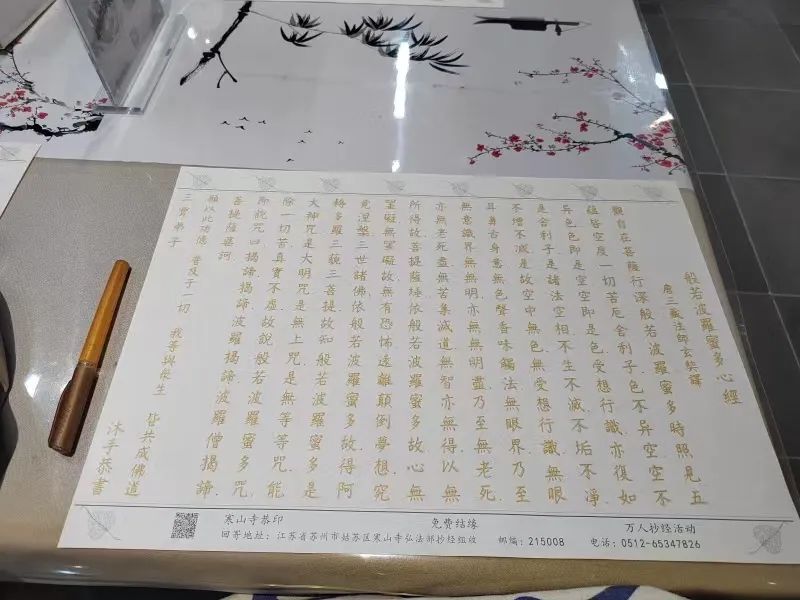 般若波羅蜜多心經
唐三藏法師玄奘譯
觀自在菩薩行深般若波羅蜜多時照見五
蘊皆空度一切苦厄舍利子色不异空空不
异色色即是空空即是色受想行識亦復如
是舍利子是諸法空相不生不滅不垢不淨
不增不减是故空中無色無受想行識無眼
耳鼻舌身意無色聲香味觸法無眼界乃至
無意識界無無明亦無無明盡乃至無老死
亦無老死盡無苦集滅道無智亦無得以無
所得故菩提薩埵依般若波羅蜜多故心無
罣礙無罣礙故無有恐怖遠離顛倒夢想究
竟涅槃三世諸佛依般若波羅蜜多故得阿
耨多羅三藐三菩提故知般若波羅蜜多是
大神咒是大明咒是無上咒是無等等咒能
除一切苦真實不虛故說般若波羅蜜多咒
即說咒曰揭諦揭諦波羅揭諦波羅僧揭諦
菩提薩婆訶
願以此功德 普及于一切 我等與眾生 皆共成佛道
三寶弟子 沐手恭書
寒山寺恭印 免费结缘 万人抄经活动
回寄地址：江苏省苏州市姑苏区寒山寺弘法部抄经组收 邮编：215008 电话：0512-65347826